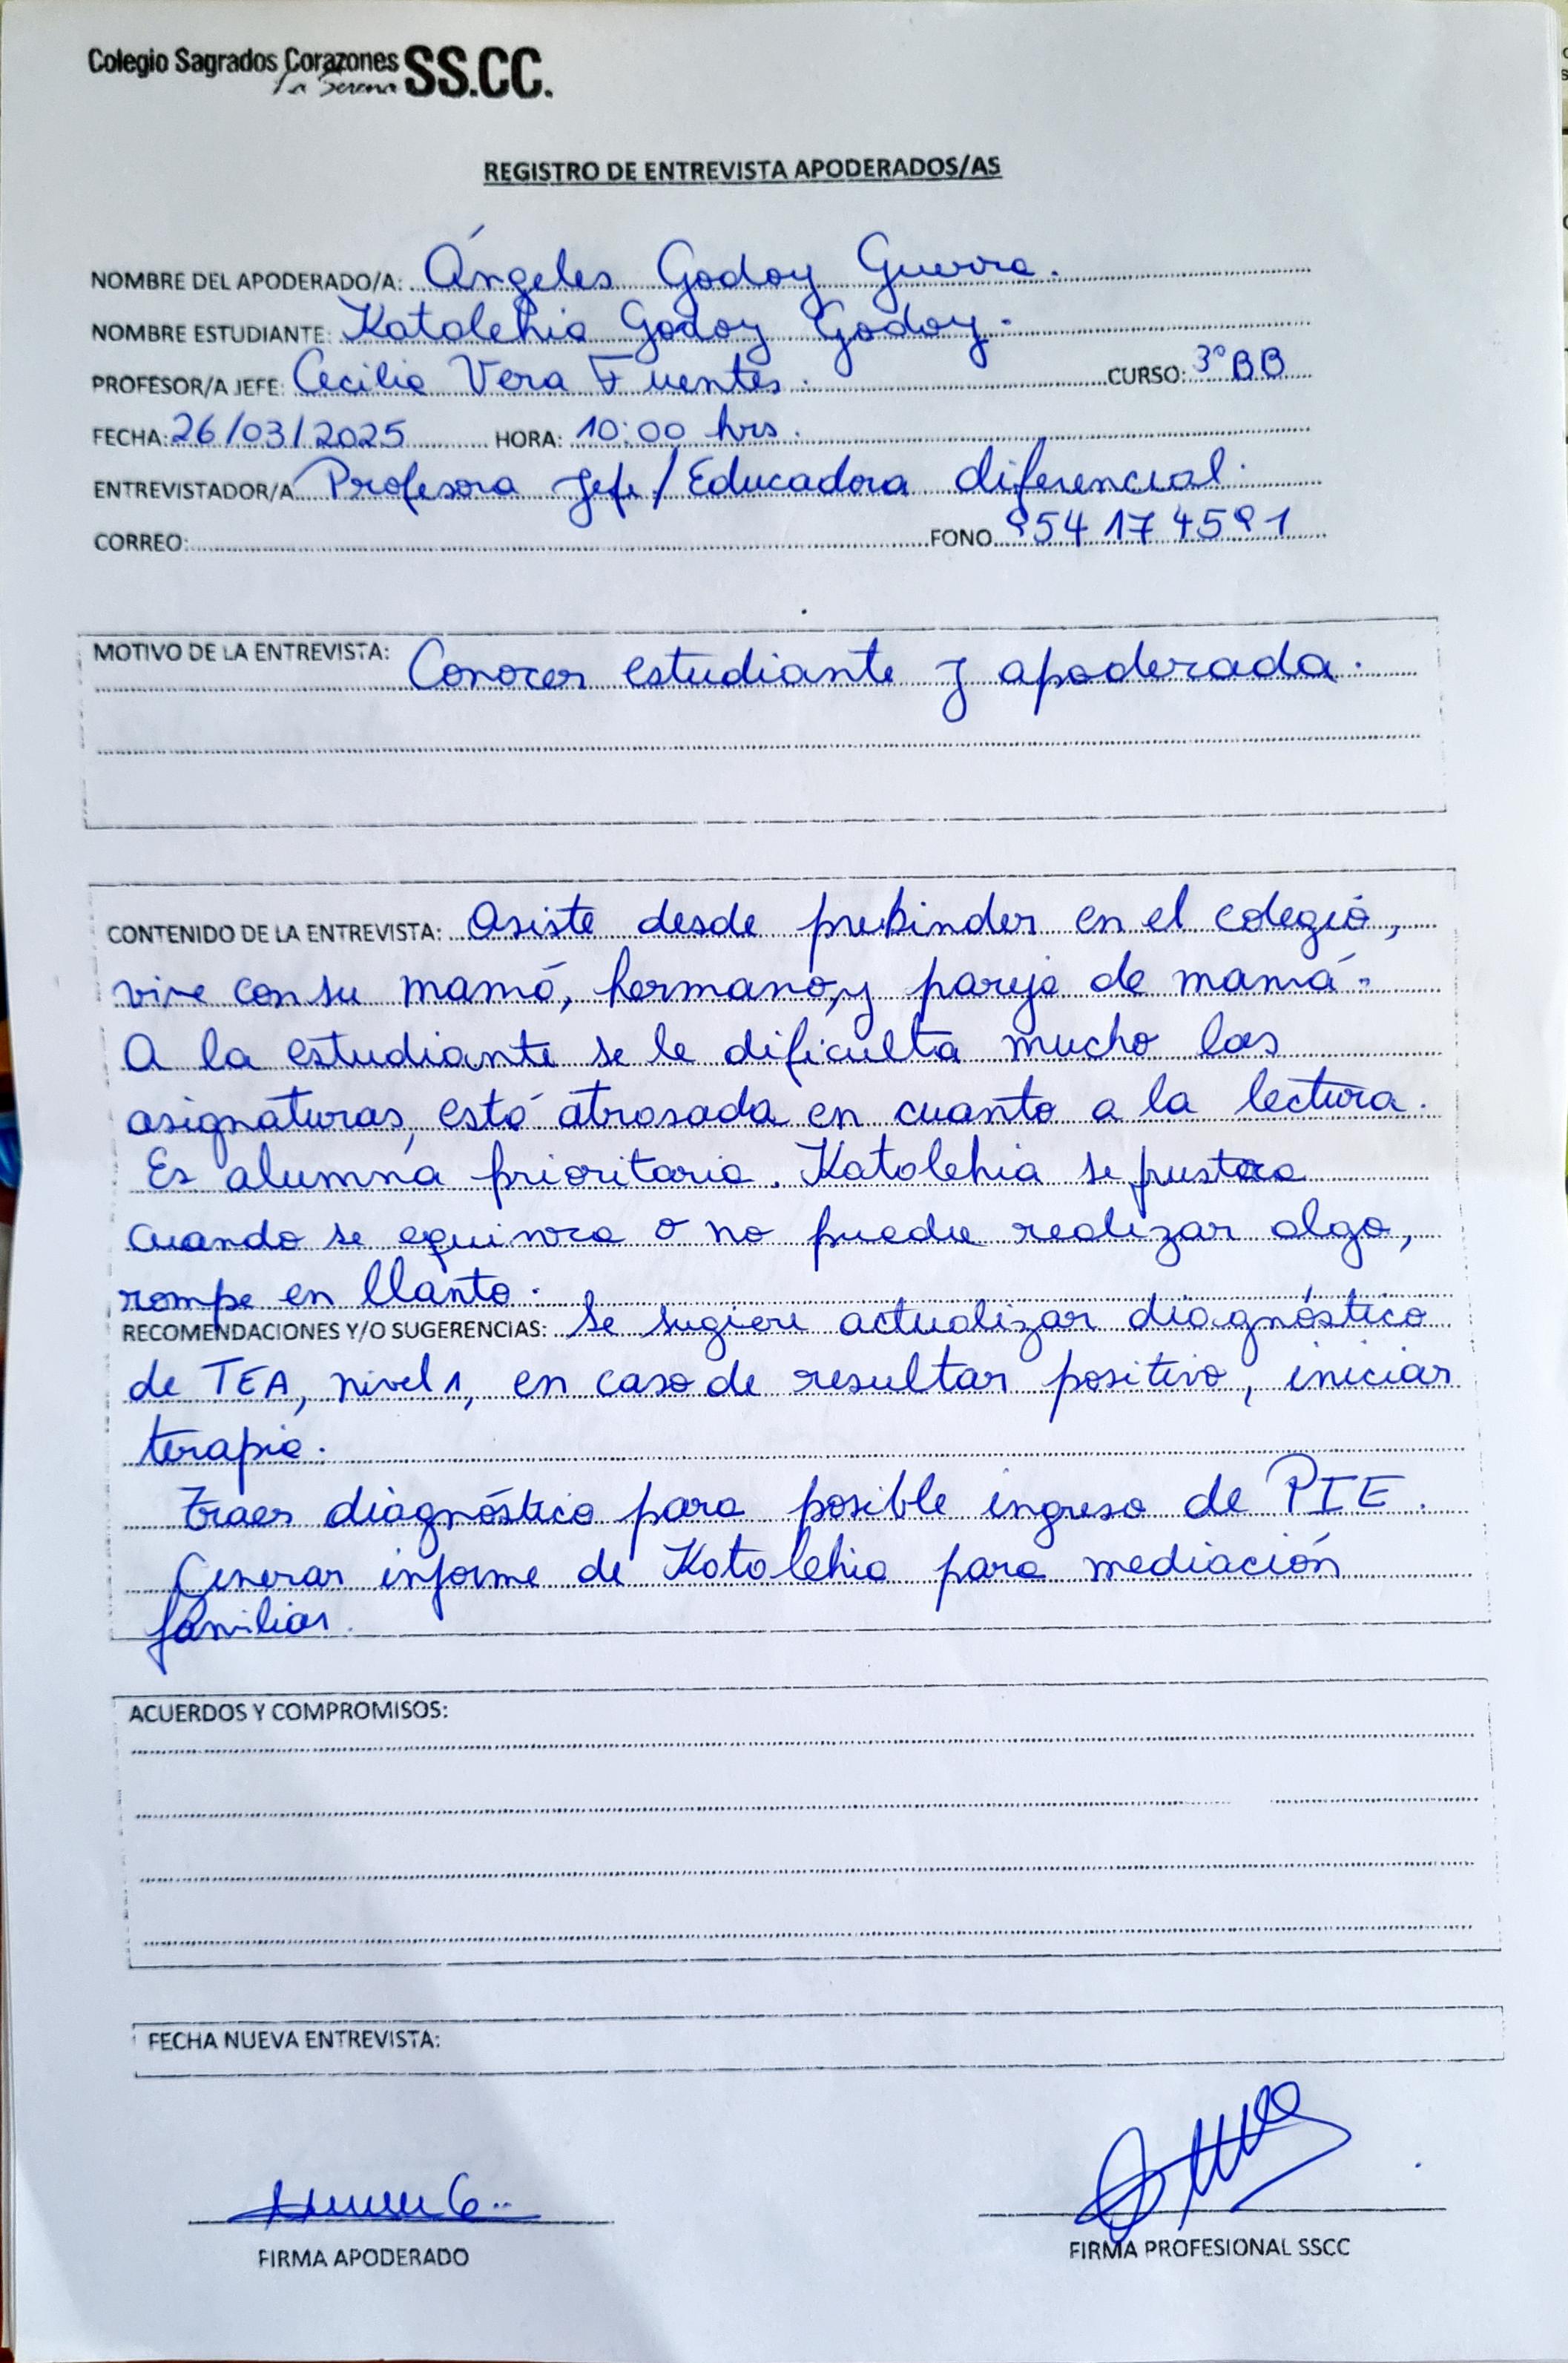 Colegio Sagrados Corazones SS.CC.
La Serena
REGISTRO DE ENTREVISTA APODERADOS/AS
NOMBRE DEL APODERADO/A: Ángeles Godoy Guerra.
NOMBRE ESTUDIANTE: Katalehia Godoy Godoy.
PROFESOR/A JEFE: Cecilia Vera Fuentes. CURSO: 3° BB
FECHA: 26/03/2025 HORA: 10:00 hrs.
ENTREVISTADOR/A Profesora Jefe/Educadora diferencial.
CORREO: FONO 954174591
MOTIVO DE LA ENTREVISTA: Conocer estudiante y apoderada.
CONTENIDO DE LA ENTREVISTA: Asiste desde prekinder en el colegio,
vive con su mamá, hermano, y pareja de mamá.
A la estudiante se le dificulta mucho las
asignaturas, está atrasada en cuanto a la lectura.
Es alumna prioritaria. Katalehia se frustra
cuando se equivoca o no puede realizar algo,
rompe en llanto.
RECOMENDACIONES Y/O SUGERENCIAS: Se sugiere actualizar diagnóstico
de TEA, nivel 1, en caso de resultar positivo, iniciar
terapia.
Traer diagnóstico para posible ingreso de PIE.
Generar informe de Katalehia para mediación
familiar.
ACUERDOS Y COMPROMISOS:
FECHA NUEVA ENTREVISTA:
FIRMA APODERADO FIRMA PROFESIONAL SSCC